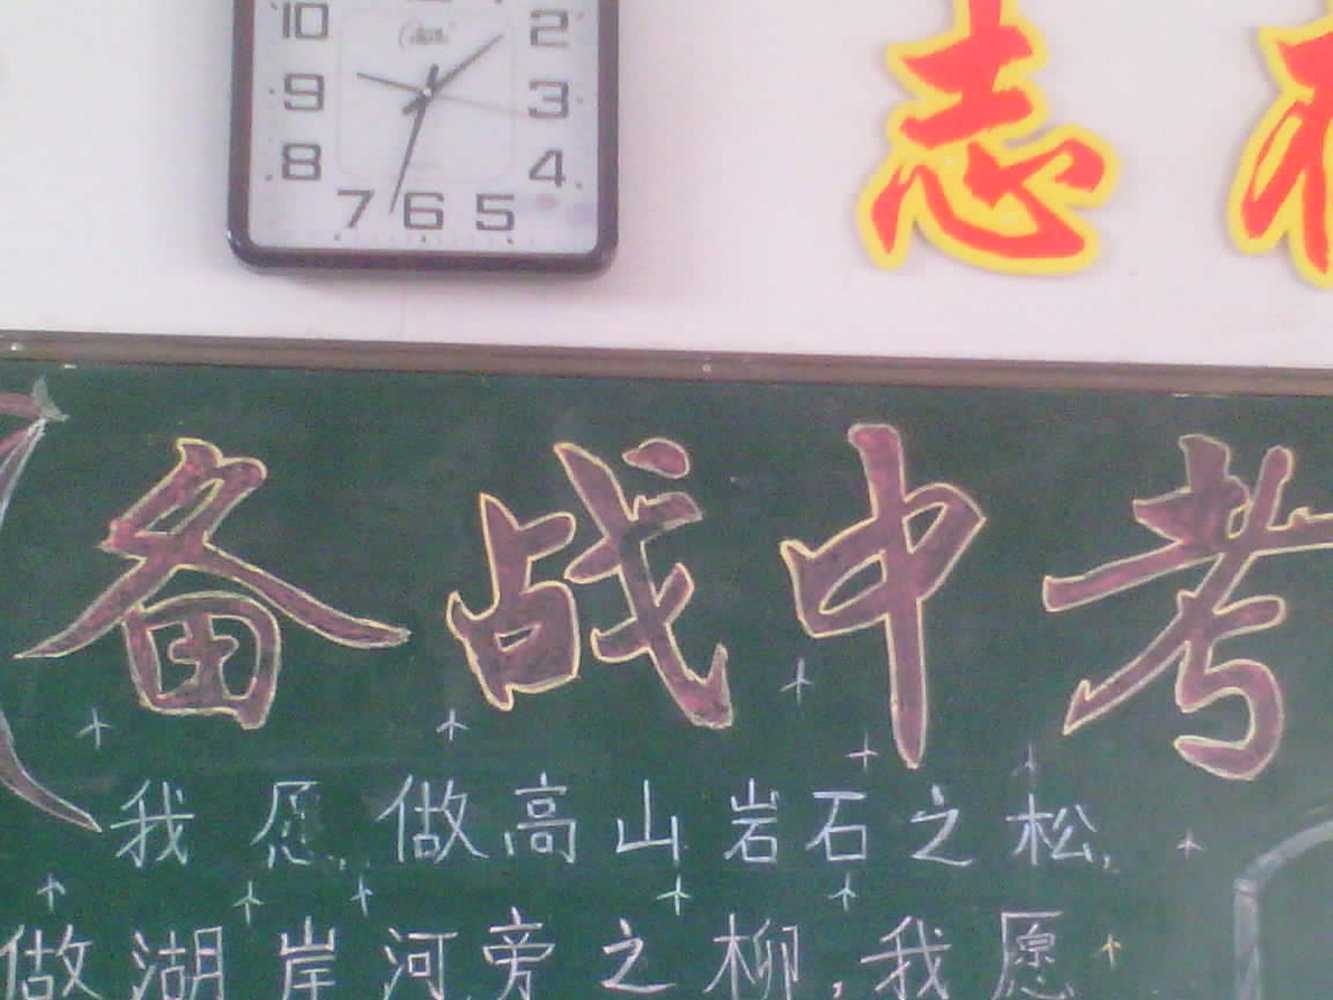 10 2
9 3
8 4
7 6 5
志
备战中考
我愿做高山岩石之松,
做湖岸河旁之柳,我愿